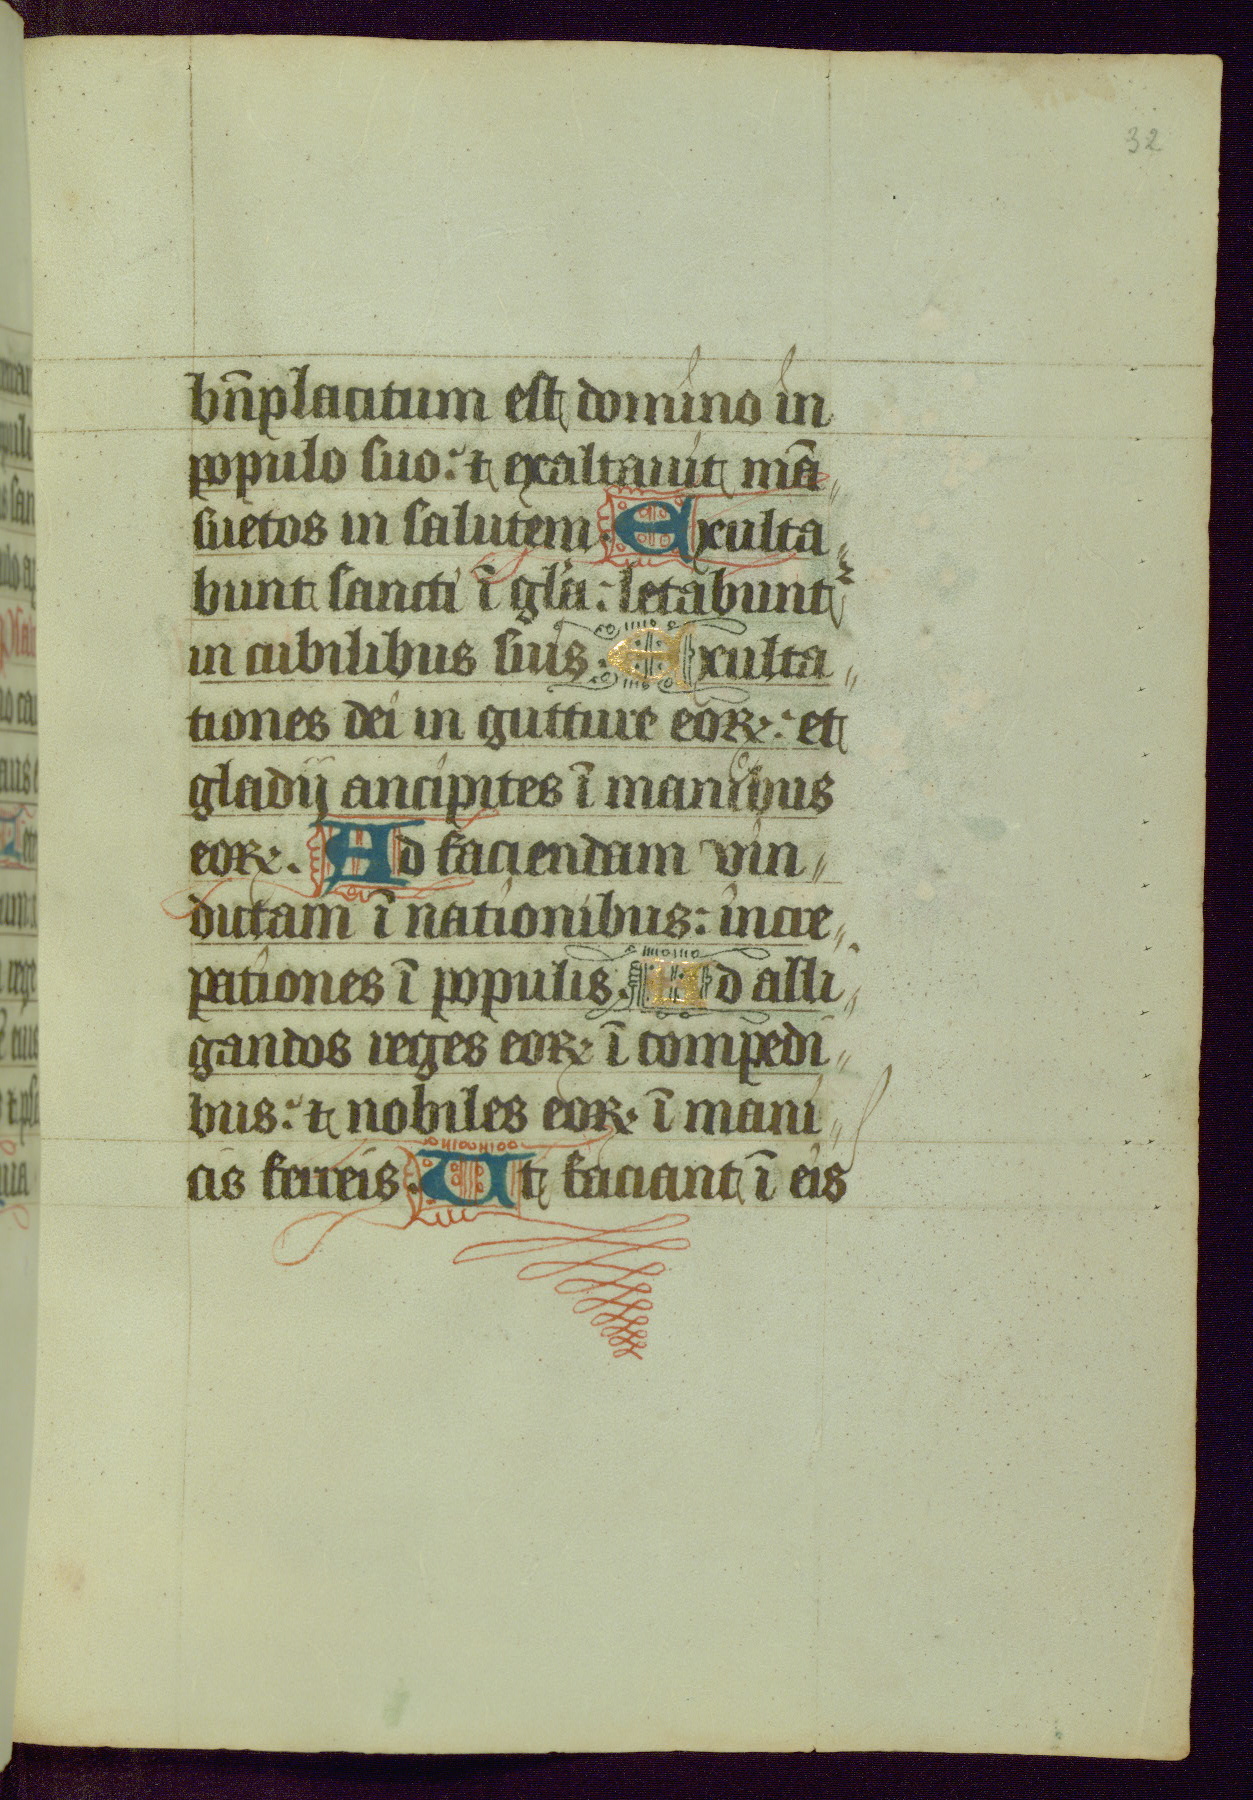 32
bn̄placitum est domino in
populo suo: ⁊ exaltauit mā„
suetos in salutem. Exulta„
bunt sancti ī gl̄a: letabunt᷑
in cubilibus suis. Exulta„
tiones dei in gutture eoꝝ: et
gladij ancipites ī manibus
eoꝝ. Ad faciendam vin„
dictam ī nationibus: incre„
pationes ī populis. Ad alli„
gandos reges eoꝝ ī compedi„
bus: ⁊ nobiles eoꝝ ī mani„
cis ferreis. Ut faciant ī eis